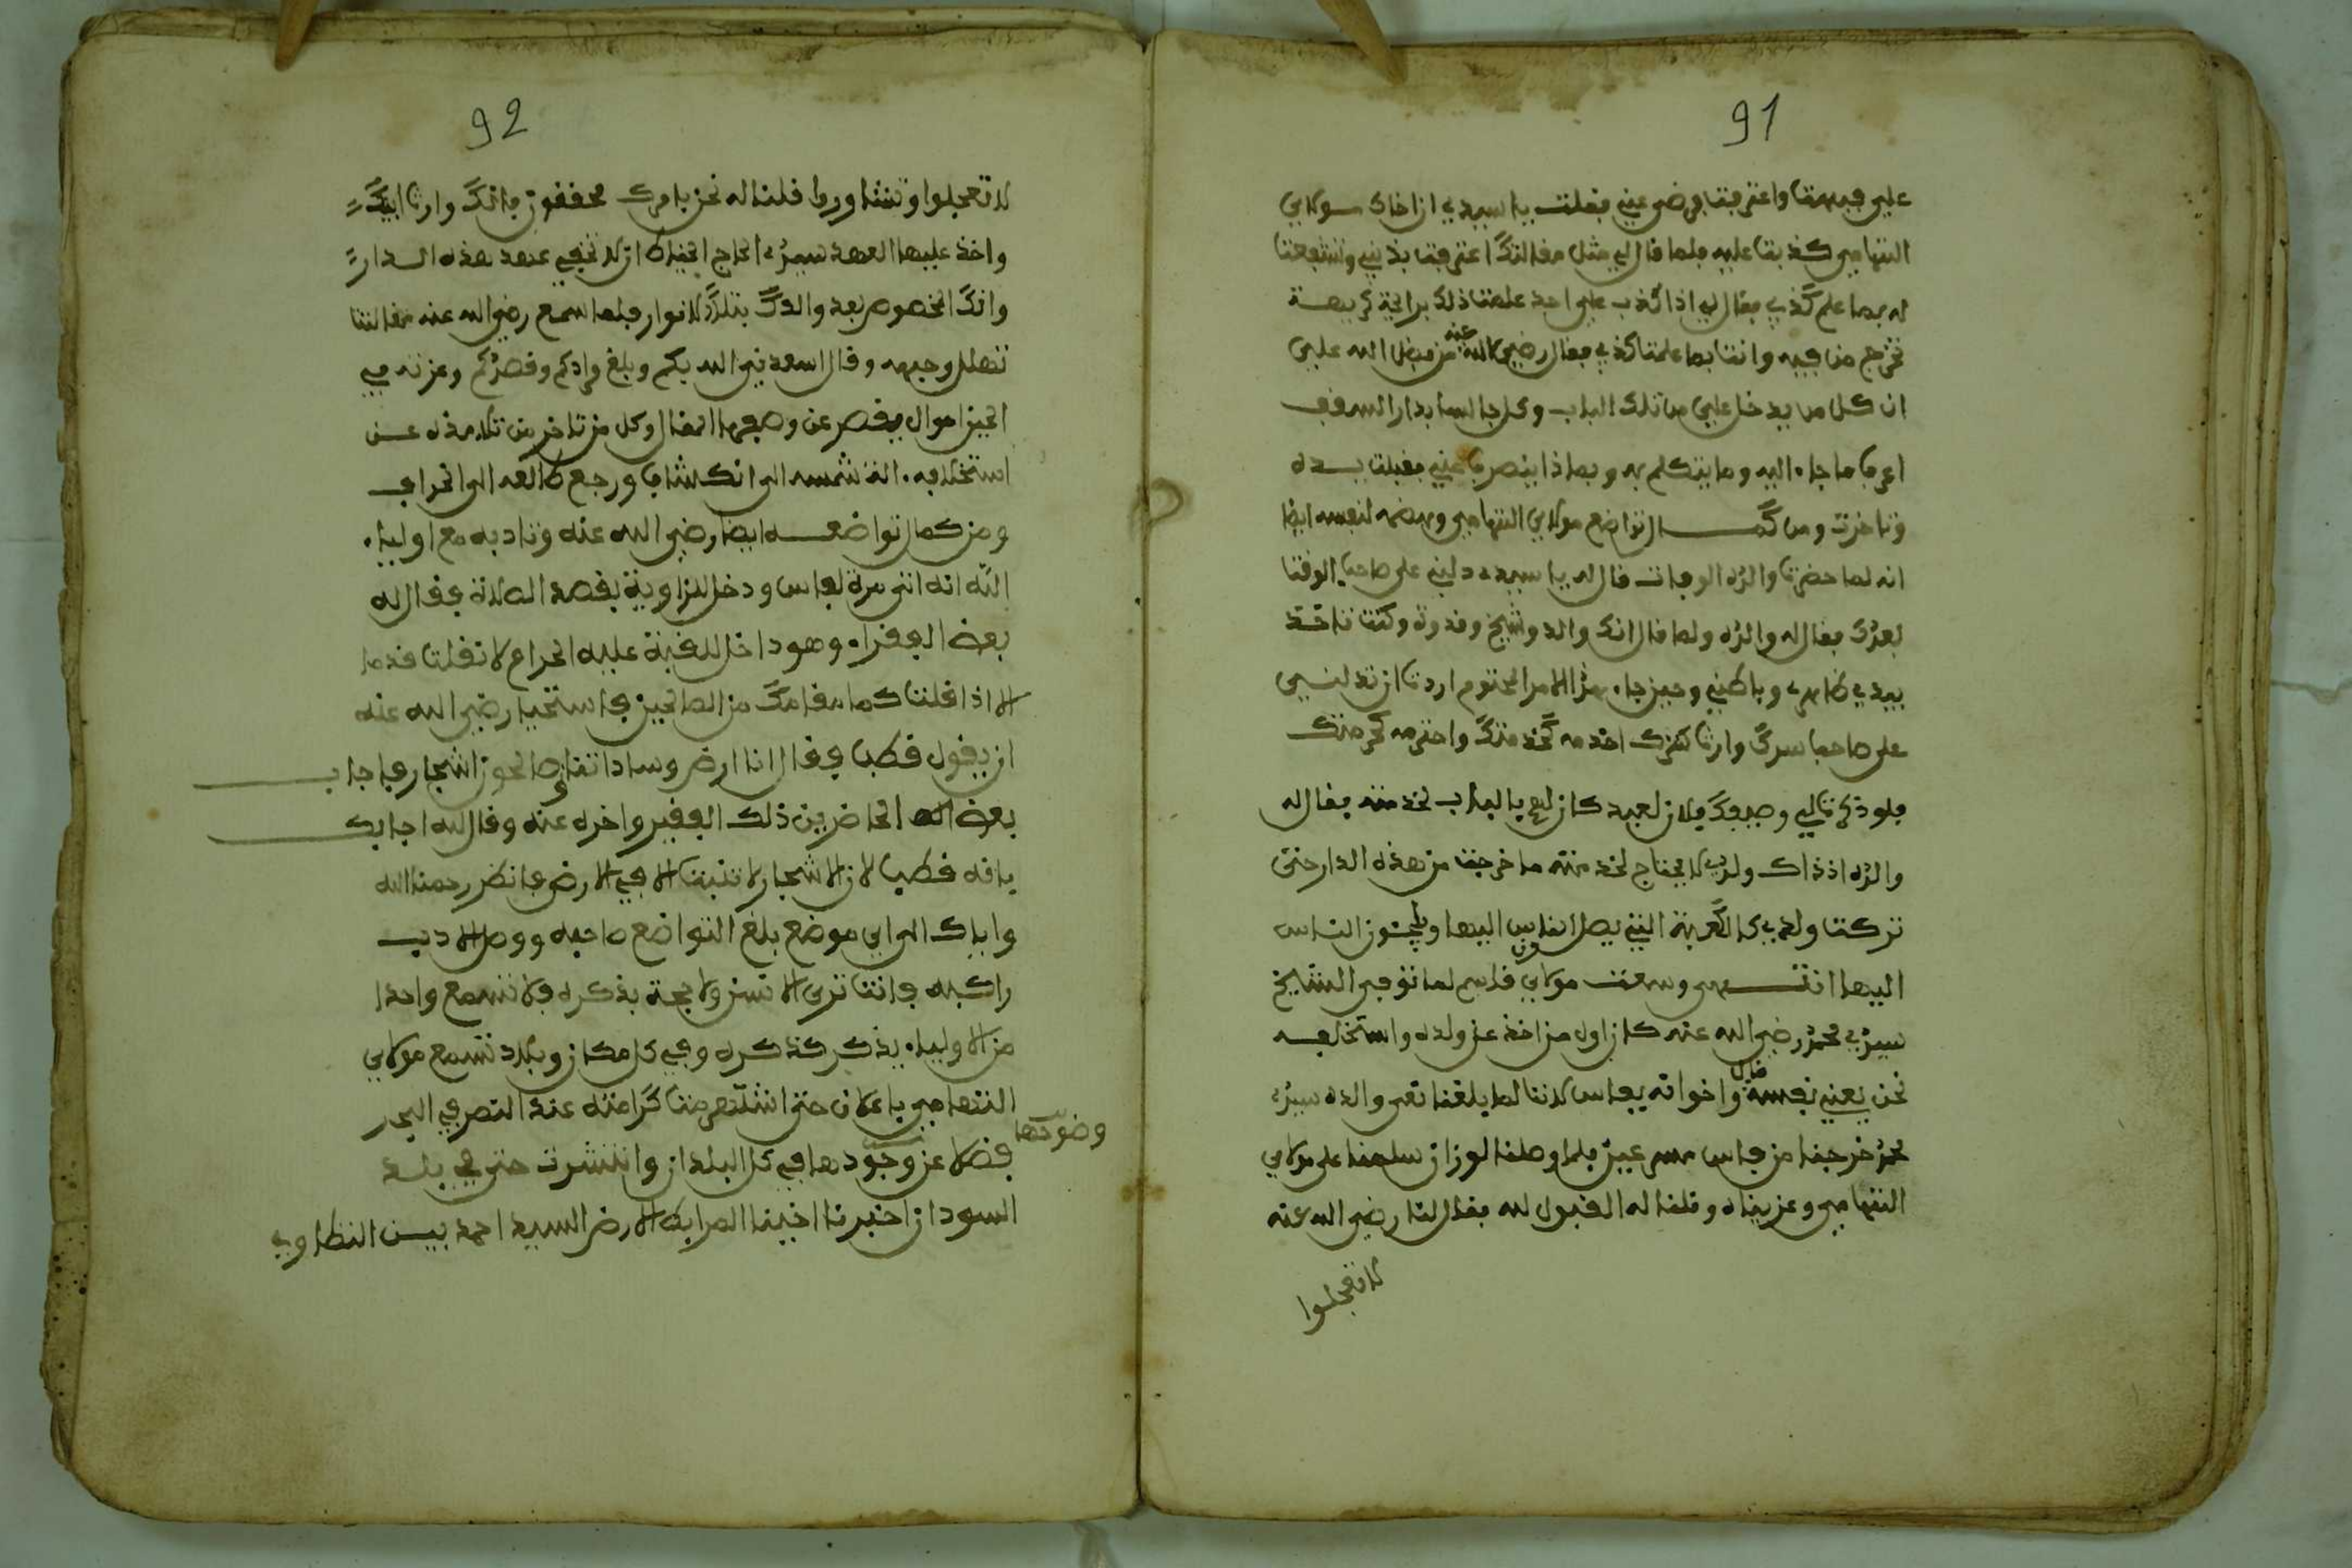 91
علي فبهتا واعترفتا ورضي عني فقلت يا سيدي ان اخاك مولاي
التهامي كذبتا عليه فلما قال لي مثل مقالتك اعترفتا بذنبي وتشفعتا
له بما علم كذبي فقال لي اذا كذب علي احد علمتا ذلك برائحة كريهة
تخرج من فيه وانتا بما علمتا كذبي فقال رضي الله عنه من فضل الله علي
ان كل من يدخل علي من تلك الباب وكل جالسا بدار السقف
اعرف ما جاء اليه وما يتكلم به وبماذا ينصرف عني فقبلت يده
وتاخرت ومن كمال تواضع مولاي التهامي وهضمه لنفسه ايضا
انه لما حضرتا والده الوفات قال له يا سيدي دلني على صاحب الوقت
بعدك فقال له والده ولما قال انك والد وشيخ وقدوة وكنت تاخذ
بيدي ظاهري وباطني وحين جاء هذا الامر المحتوم اردتا ان تدلني
على صاحب سرك وارث كنزك اخدمه كخدمتك واحترمه كحرمتك
فلو ذكرتا لي وصيفك فلان لعبد كان لهم بالباب لخدمته فقال له
والده اذ ذاك ولدي لا يحتاج لخدمته ما خرجت من هذه الدار حتى
تركت ولدي كالكعبة التي يصل الناس اليها ويحجون الناس
اليها انتهى وسمعت مولاي قاسم لما توفي الشيخ
سيدي محمد رضي الله عنه كان اول من اخذ عن ولده واستخالفه
نحن يعني نفسه قال واخوانه بفاس لاننا لما بلغنا نعي والده سيدي
محمد خرجنا من فاس فلما وصلنا لوزان سلمنا على مولاي
التهامي وعزيناه وقلنا له القبول لله فقال لنا رضي الله عنه
لا تعجلوا
92
لا تعجلوا وتشاوروا قلنا له نحن بامرك محققون بانك وارث ابيك
واخذ علينا العهد سيدي الحاج الخياط ان لا نخفي عهد هذه الدار
وانك المخصوص بعد والدك بتلك الانوار فلما سمع رضي الله عنه مقالتنا
تهلل وجهه وقال اسعدني الله بكم وبلغ مرادكم وقصدكم وعزته في
الحين احوال يقصر عن وصفها المقال وكل من تاخر من تلامذه عن
استخلافه الت شمسه الى انكشاف ورجع طالعه الى انحراف
ومن كمال تواضعه ايضا رضي الله عنه وتادبه مع اولياء
الله انه اتى مرة لفاس ودخل للزاوية بقصد الصلاة فقال له
بعض الفقراء وهو داخل للقبة عليه الحرام لا نقلت قدما
الا اذا قلت كما مقامك من الصالحين فاستحيا رضي الله عنه
ان يقول قطب فقال انا ارض وساداتنا الصالحون اشجار فاجاب
بعض الحاضرين ذلك الفقير واخره عنه وقال له اجابك
بانه قطب لان الاشجار لا تنبت الا في الارض فانظر رحمنا الله
واياك الى اي موضع بلغ التواضع صاحبه ووصل الادب
راكبه فانت ترى الا تسن ولا بجة بذكره فلا تسمع واحدا
من الاولياء يذكر كذكره وفي كل مكان وبلاد تسمع مولاي
التهامي باعلان حتى اشتهرت كرامته عند النصر في البحر
فضلا عن وجودها في كل البلدان وانتشرت حتى في بلد
وضوحها
السودان اخبرنا اخينا المرابط الارضى السيد احمد بيس النظاوي